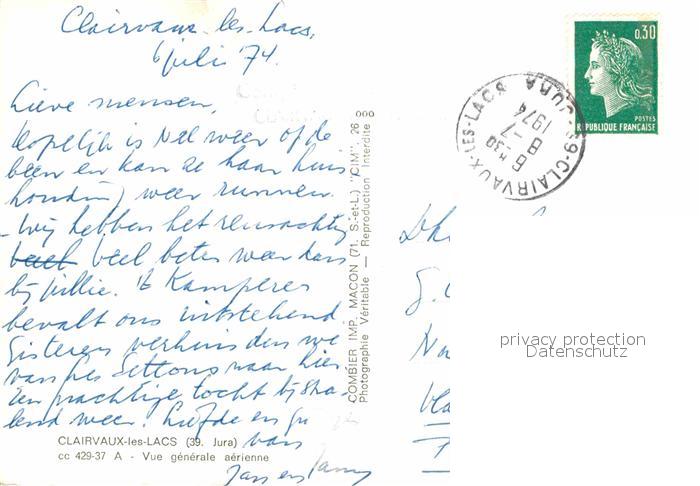 Clairvaux-les-Lacs,
6 juli '74.
Lieve mensen,
Hopelijk is Nel weer op de
been en kan ze haar huis
houding weer runnen.
- Wij hebben het reusachtig
veel beter weer dan
bij jullie. 't Kamperen
bevalt ons uitstekend
Gisteren verhuisden we
van les Settons naar hier
een prachtige tocht bij stra-
lend weer! Liefde en
van
Jan en
CLAIRVAUX-les-LACS (39. Jura)
cc 429-37 A - Vue générale aérienne
COMBIER IMP. MACON (71. S.-et-L.) "CIM". 26
Photographie Véritable — Reproduction Interdite
0,30
POSTES
REPUBLIQUE FRANÇAISE
39-CLAIRVAUX-LES-LACS JURA
6 H 30
8-7
1974
Dh
privacy protection
Datenschutz